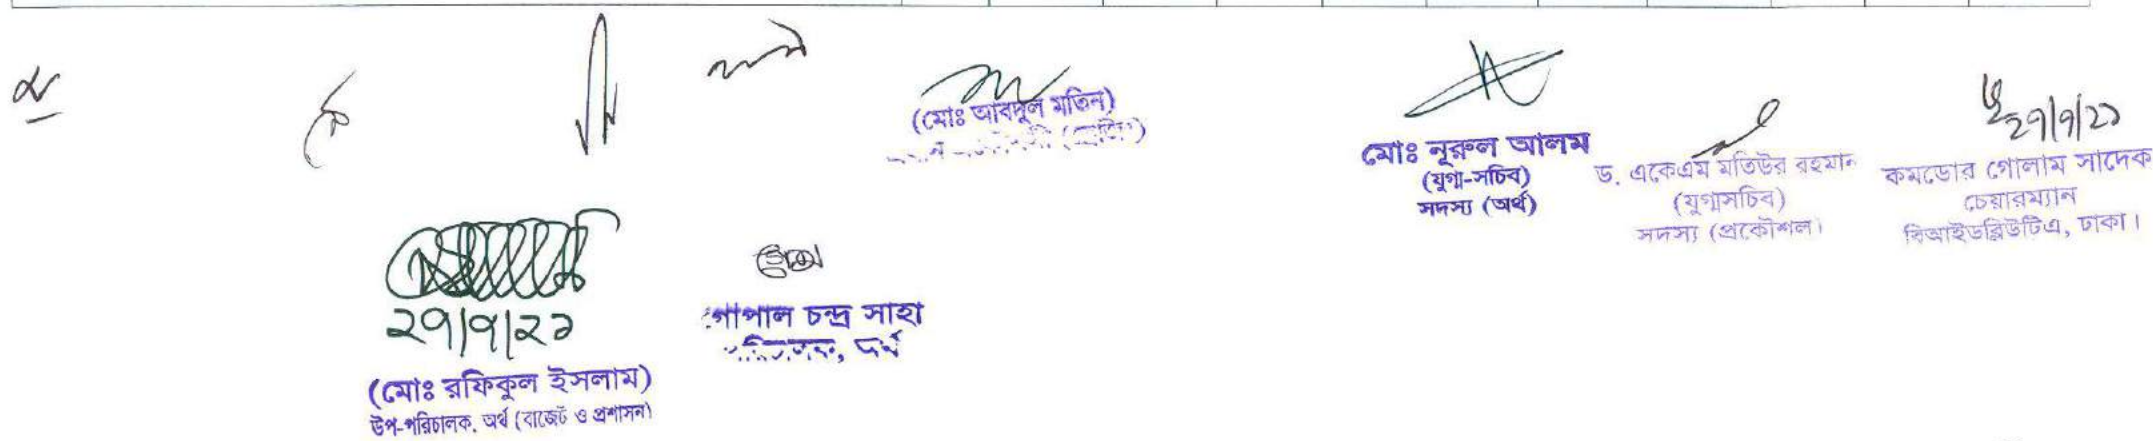 (মোঃ আবদুল মতিন)
মোঃ নূরুল আলম
(যুগ্ম-সচিব)
সদস্য (অর্থ)
ড. একেএম মতিউর রহমান
(যুগ্মসচিব)
সদস্য (প্রকৌশল)
২৭/৭/২১
কমডোর গোলাম সাদেক
চেয়ারম্যান
বিআইডব্লিউটিএ, ঢাকা।
২৭/৭/২১
(মোঃ রফিকুল ইসলাম)
উপ-পরিচালক, অর্থ (বাজেট ও প্রশাসন)
গোপাল চন্দ্র সাহা